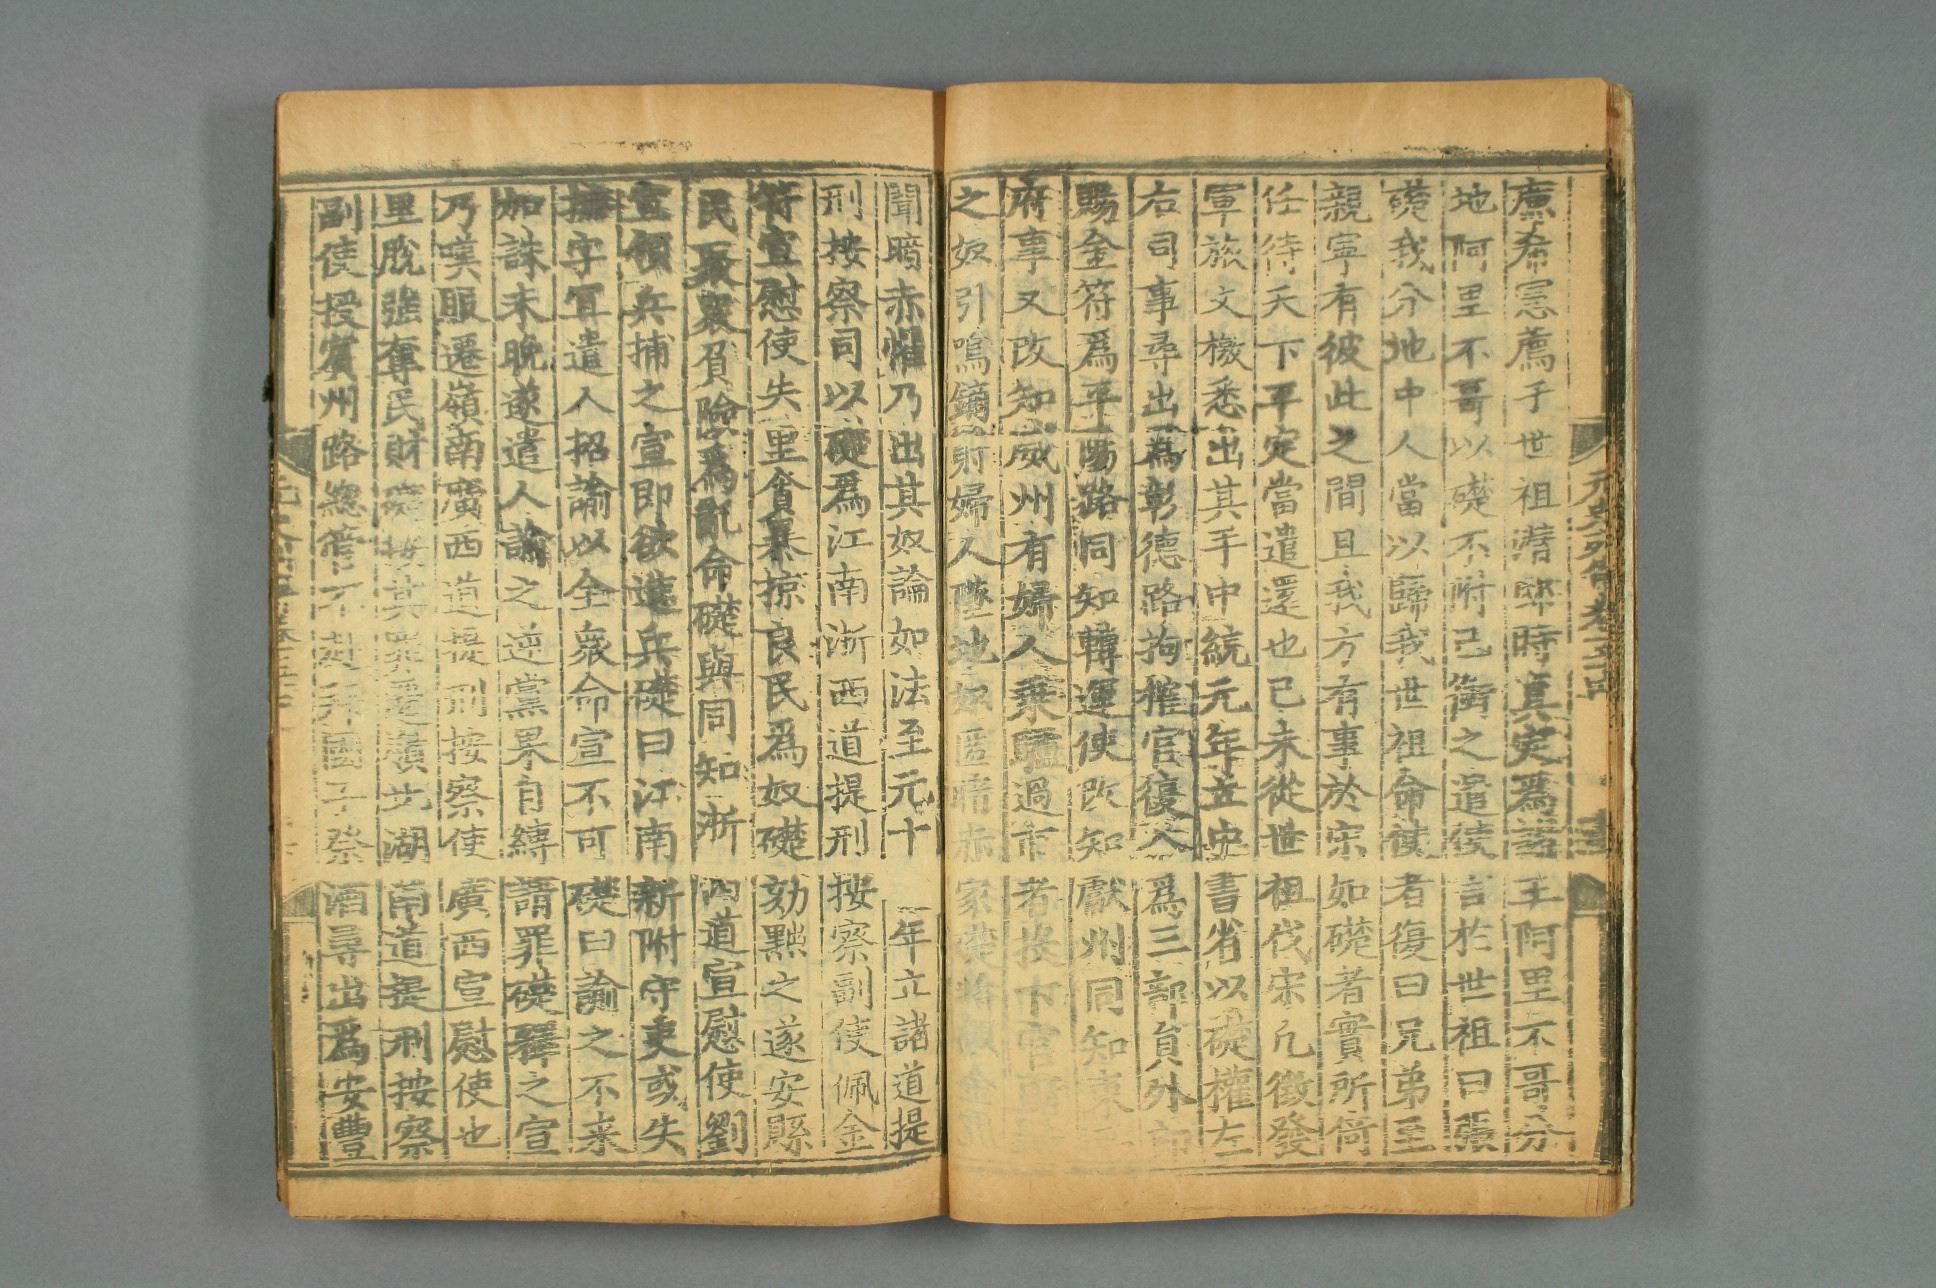 廉希憲薦于世祖潛邸時真定為諸王阿里不哥分
地阿里不哥以礎不附己銜之遣使言於世祖曰張
礎我分地中人當以歸我世祖命使者復曰兄弟至
親寧有彼此之間且我方有事於宋如礎者實所倚
任待天下平定當遣還也己未從世祖伐宋凡徵發
軍旅文檄悉出其手中統元年立中書省以礎權左
右司事尋出為彰德路拘榷官復入為三部員外郎
賜金符爲平陽路同知轉運使改知獻州同知東
府事又改知威州有婦人乗驢過市者投下官
之奴引鳴鏑射婦人墜地奴匿暗赤家礎將
聞暗赤懼乃出其奴論如法至元十一年立諸道提
刑按察司以礎爲江南浙西道提刑按察副使佩金
符宣慰使失里貪暴掠良民爲奴礎劾黙之遂安縣
民聚衆負險爲亂命礎與同知浙西道宣慰使劉
宣領兵捕之宣即欲進兵礎曰江南新附守吏或失
撫字宜遣人招諭以全衆命宣不可礎曰諭之不来
加誅未晚遂遣人諭之逆黨果自縛請罪礎釋之宣
乃嘆服遷嶺南廣西道提刑按察使廣西宣慰使也
里脱強奪民財礎按其罪遷嶺北湖南道提刑按察
副使授賓州路總管不赴拜國子祭酒尋出爲安豐